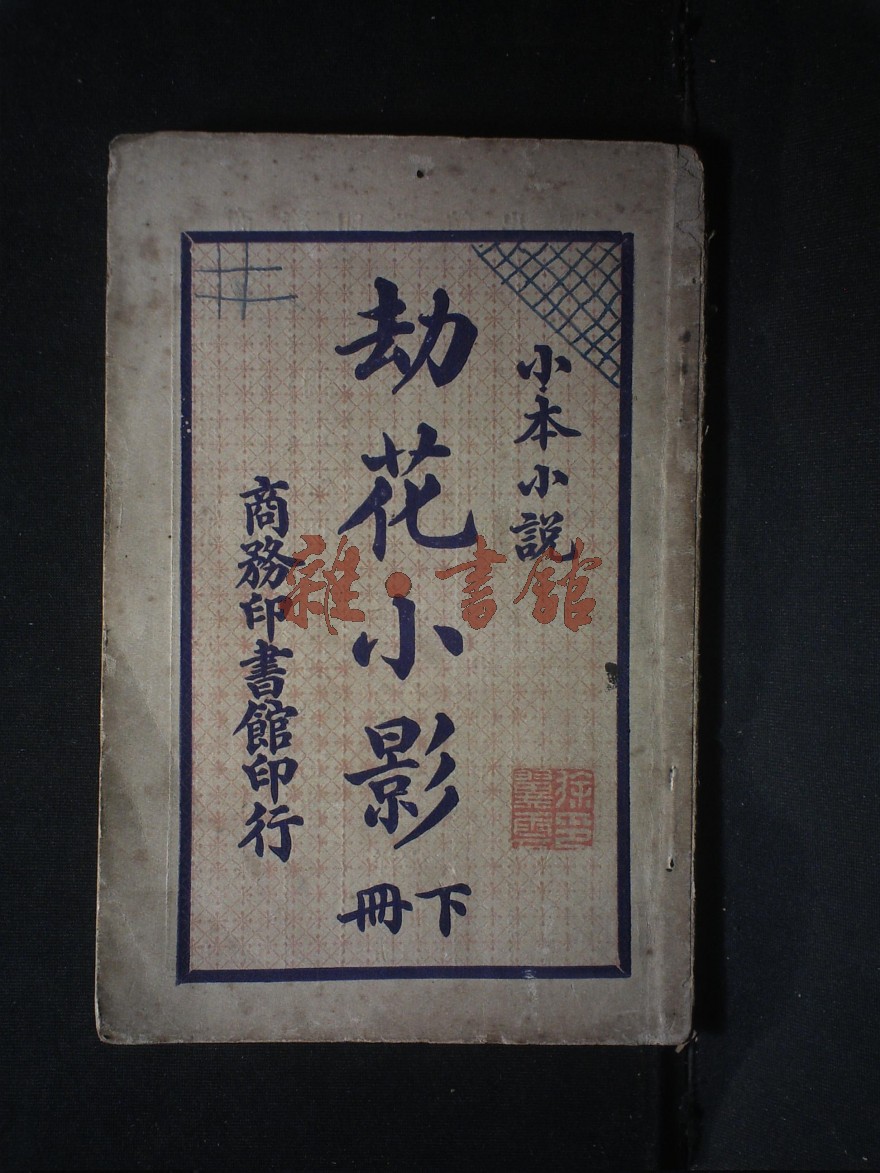 小本小説
劫花小影
下冊
商務印書館印行
雜·書館